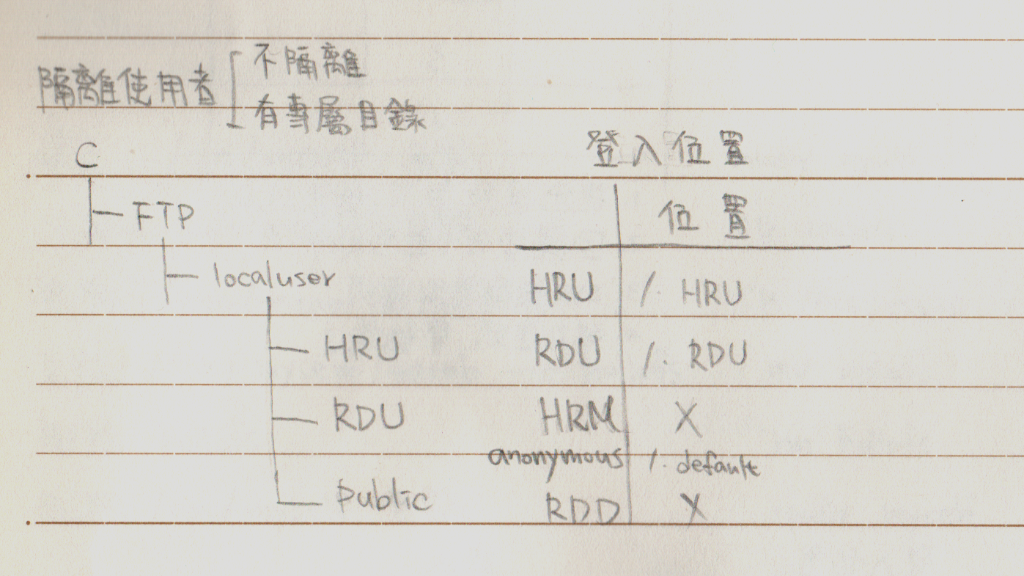 隔離使用者
不隔離
有專屬目錄
C
FTP
localuser
HRU
RDU
Public
登入位置
位置
HRU /. HRU
RDU /. RDU
HRM X
anonymous /. default
RDD X